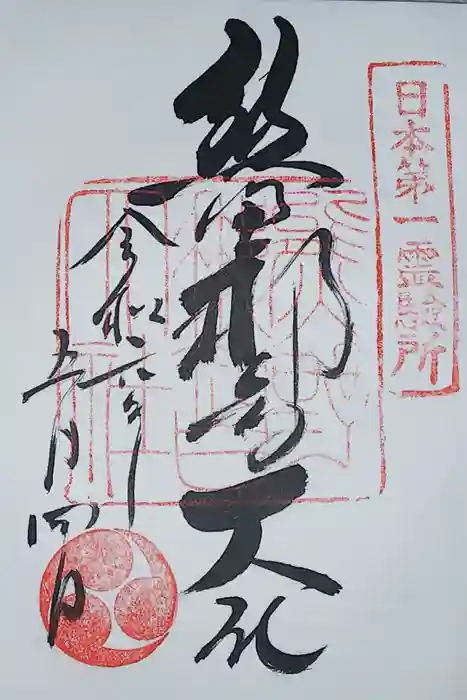 日本第一霊験所
熊野那智大社
令和六年
五月四日